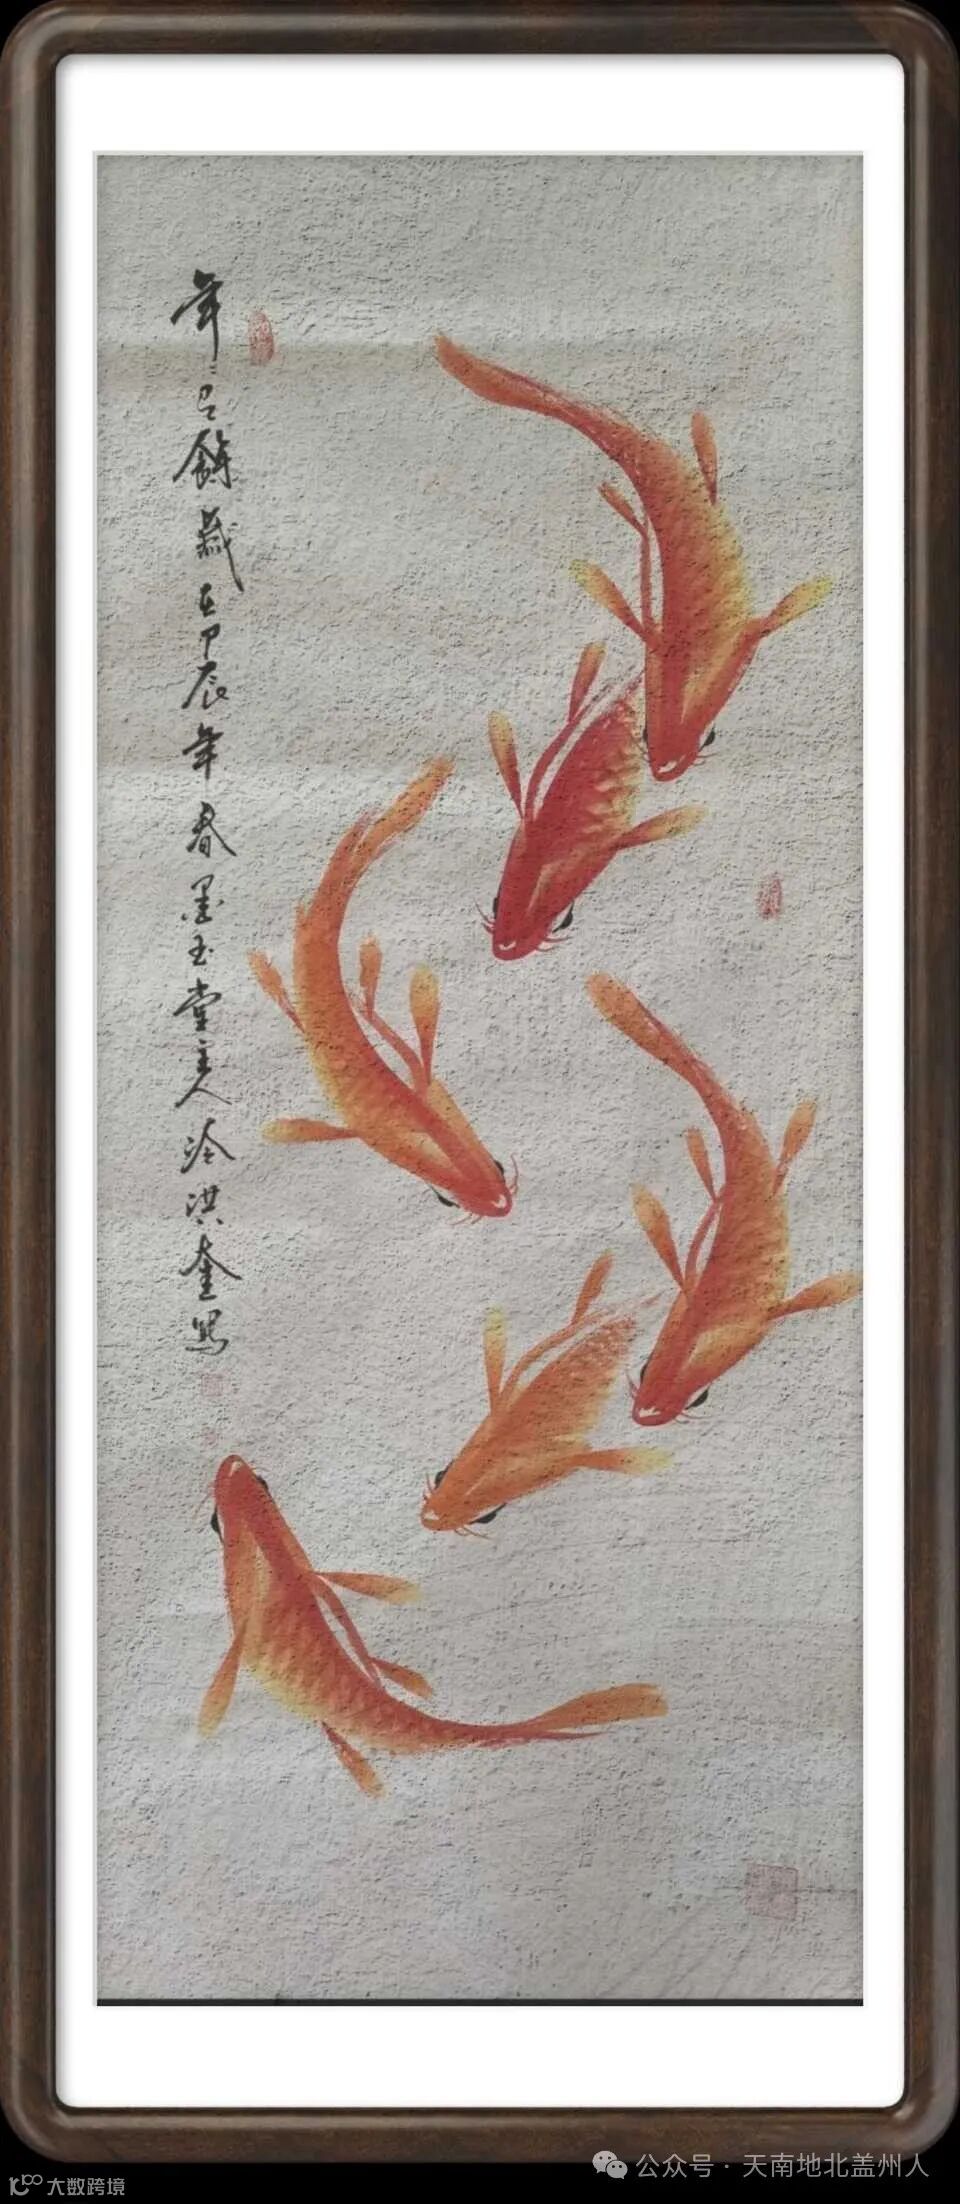 年〻已餘歲在甲辰年春墨玉堂主人冷洪奎寫
公众号 · 天南地北盖州人
大数跨境